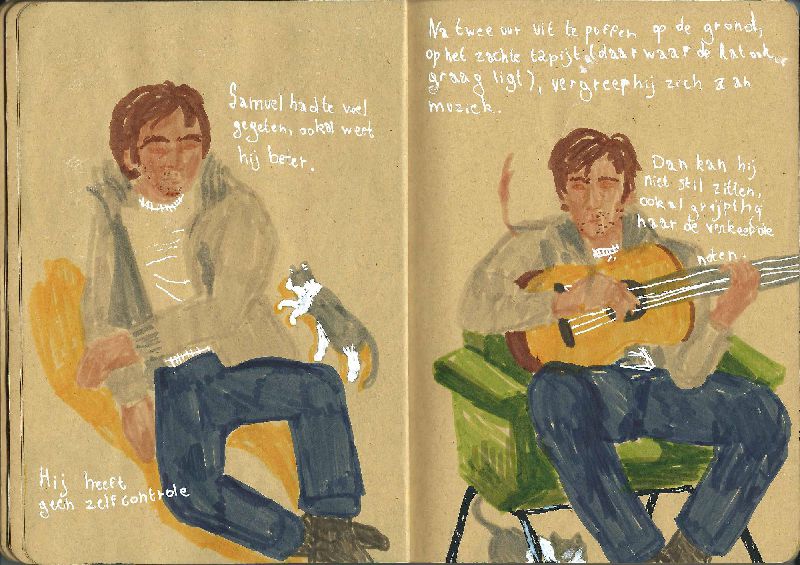 Samuel had te veel
gegeten, ook al weet
hij beter.
Hij heeft
geen zelfcontrole
Na twee uur uit te puffen op de grond,
op het zachte tapijt (daar waar de kat ook
graag ligt), vergreep hij zich aan
muziek.
Dan kan hij
niet stil zitten,
ook al grijpt hij
naar de verkeerde
noten.